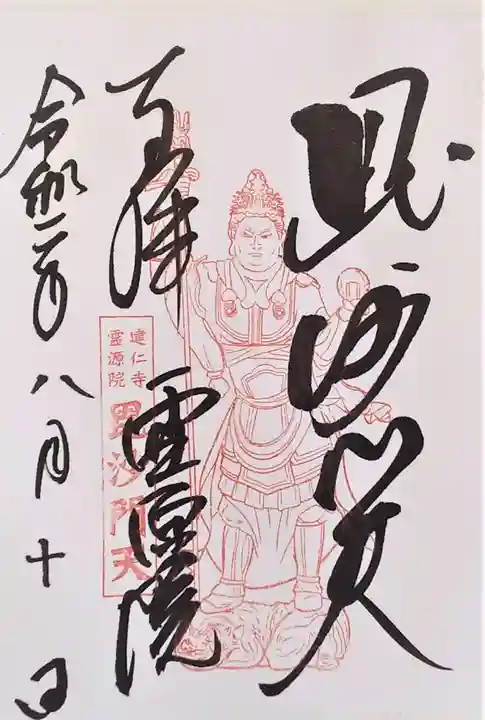 毘沙門天
奉拝
霊源院
建仁寺
霊源院
毘沙門天
令和二年
八月十日